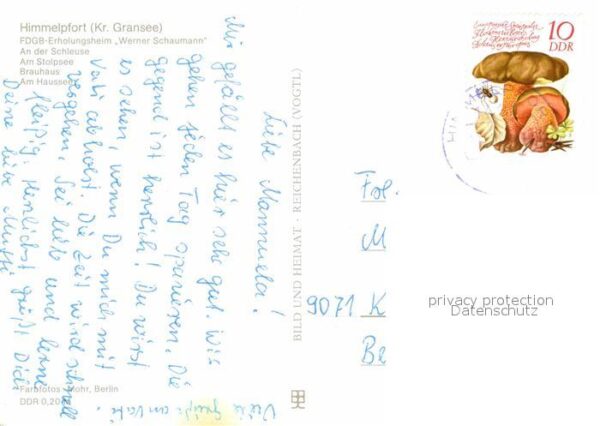 Himmelpfort (Kr. Gransee)
FDGB-Erholungsheim „Werner Schaumann"
An der Schleuse
Am Stolpsee
Brauhaus
Am Haussee
Liebe Mannuela!
Mir gefällt es hier sehr gut. Wir
gehen jeden Tag spazieren. Die
Gegend ist herrlich! Du wirst
es sehen, wenn Du mich mit
Vati abholst. Die Zeit wird schnell
vergehen. Sei lieb und lerne
fleißig. Herzlichst grüßt Dich
Deine liebe Mutti.
Viele Grüße an Vati.
Farbfotos: Mohr, Berlin
DDR 0,20
BILD UND HEIMAT · REICHENBACH (VOGTL)
10
DDR
Frl.
M
9071 K
Be
privacy protection
Datenschutz